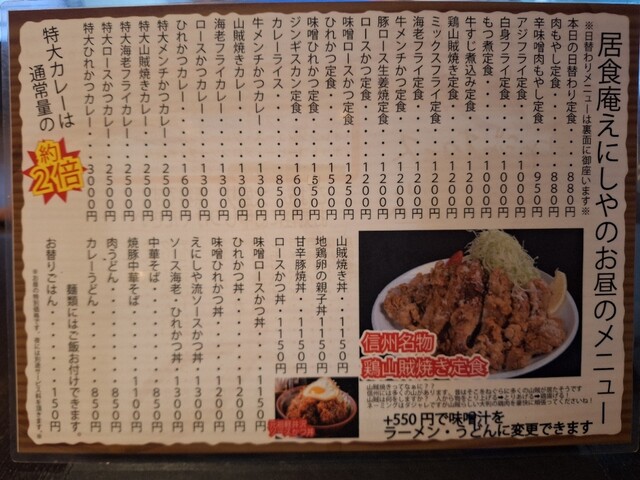 居食庵えにしやのお昼のメニュー
※日替わりメニューは裏面に御座います※
本日の日替わり定食・・880円
肉もやし定食・・・・880円
辛味噌肉もやし定食・・950円
アジフライ定食・・・・1000円
白身フライ定食・・・・1000円
もつ煮定食・・・・・1000円
牛すじ煮込み定食・・・1200円
鶏山賊焼き定食・・・・1300円
ミックスフライ定食・・1300円
海老フライ定食・・・・1200円
牛メンチかつ定食・・・1200円
豚ロース生姜焼定食・・1200円
ロースかつ定食・・・・1200円
味噌ロースかつ定食・・1250円
ひれかつ定食・・・・・1500円
味噌ひれかつ定食・・・1550円
ジンギスカン定食・・・1600円
カレーライス・・・・・850円
牛メンチかつカレー・・1300円
山賊焼きカレー・・・・1300円
海老フライカレー・・・1300円
ロースかつカレー・・・1300円
ひれかつカレー・・・・1600円
特大メンチかつカレー・・2500円
特大山賊焼きカレー・・・2500円
特大海老フライカレー・・2500円
特大ロースかつカレー・・2500円
特大ひれかつカレー・・・3000円
特大カレーは
通常量の
約
2倍
信州名物
鶏山賊焼き定食
山賊焼きってなぁに??
+550円で味噌汁を
ラーメン・うどんに変更できます
山賊焼き丼・・1150円
地鶏卵の親子丼・1150円
甘辛豚焼丼・・1150円
ロースかつ丼・・1150円
味噌ロースかつ丼・・1150円
ひれかつ丼・・・・1200円
味噌ひれかつ丼・・・1200円
えにしや流ソースかつ丼・1300円
ソース海老・ひれかつ丼・1300円
中華そば・・・・・850円
焼豚中華そば・・・1100円
肉うどん・・・・・850円
カレーうどん・・・・850円
麺類にはご飯お付けできます。
お替りごはん・・・・・150円